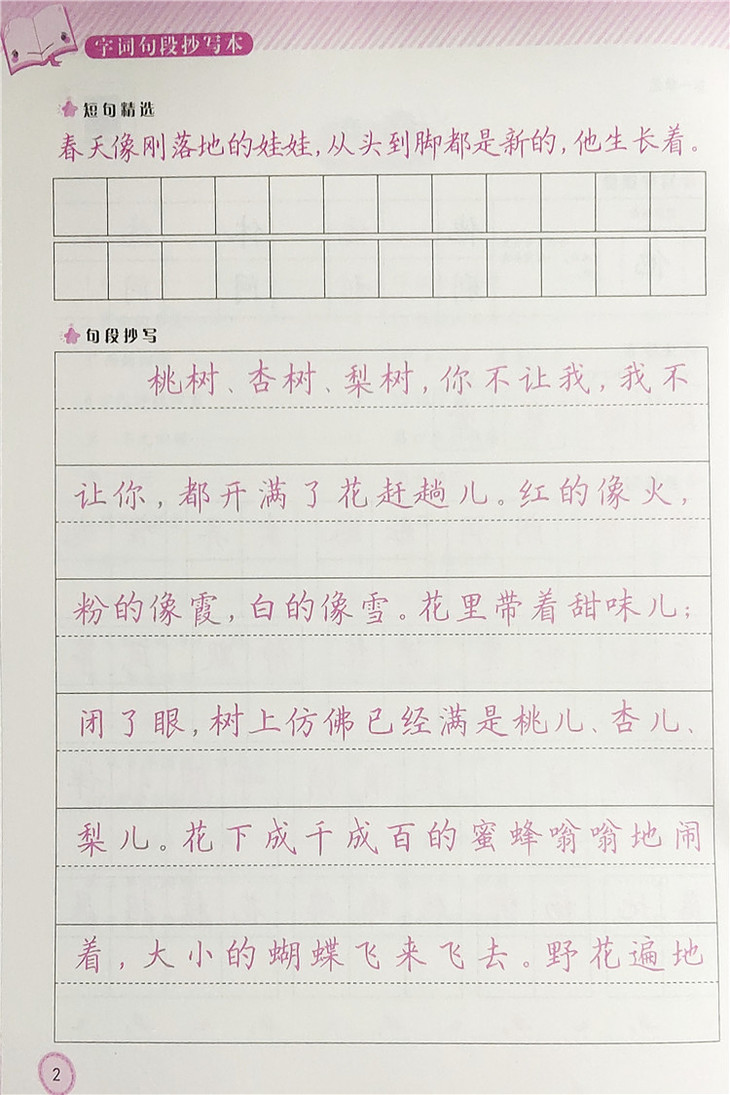 字词句段抄写本
短句精选
春天像刚落地的娃娃,从头到脚都是新的,他生长着。
句段抄写
桃树、杏树、梨树,你不让我,我不
让你,都开满了花赶趟儿。红的像火,
粉的像霞,白的像雪。花里带着甜味儿;
闭了眼,树上仿佛已经满是桃儿、杏儿、
梨儿。花下成千成百的蜜蜂嗡嗡地闹
着,大小的蝴蝶飞来飞去。野花遍地
2